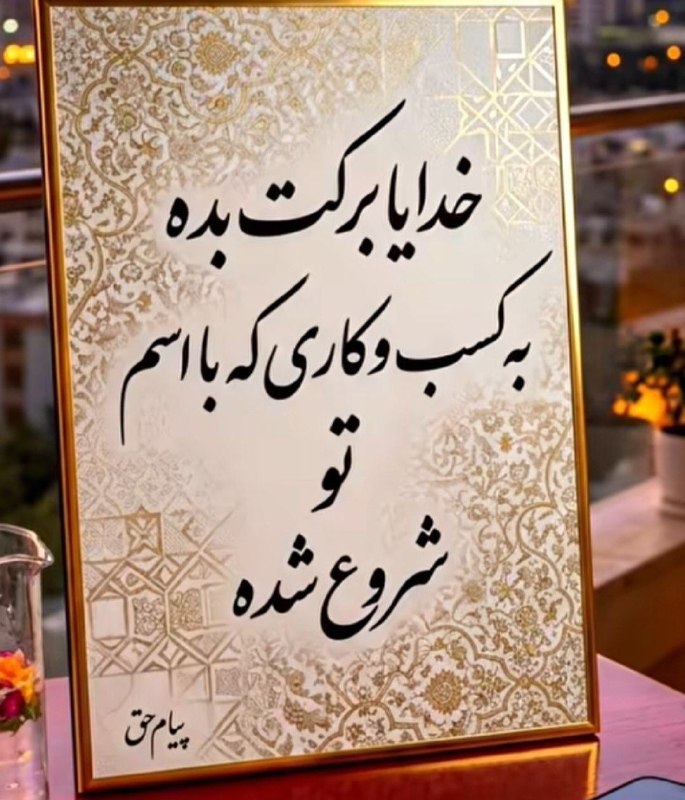 خدایا برکت بده
به کسب و کاری که با اسم
تو
شروع شده
پیام حق